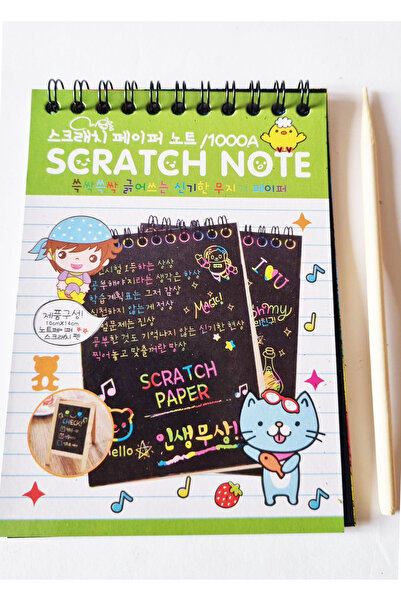 스크래치 페이퍼 노트 /1000A
SCRATCH NOTE
쓱싹쓱싹 긁어쓰는 신기한 무지개 페이퍼
제품구성!
10cm×14cm
노트페이퍼
스크래치 펜
인시험 1등하는 상상
공부해야지라는 생각은 항상
학습계획표는 그저 감상
실천하지 않는게 정상
시험문제는 진상
공부한 것도 기억나지 않는 신기한 현상
찍어놓고 맞출꺼란 망상
MAGIC!
I YOU
oh my
SCRATCH
PAPER
Hello
인생무상!
CHECK!